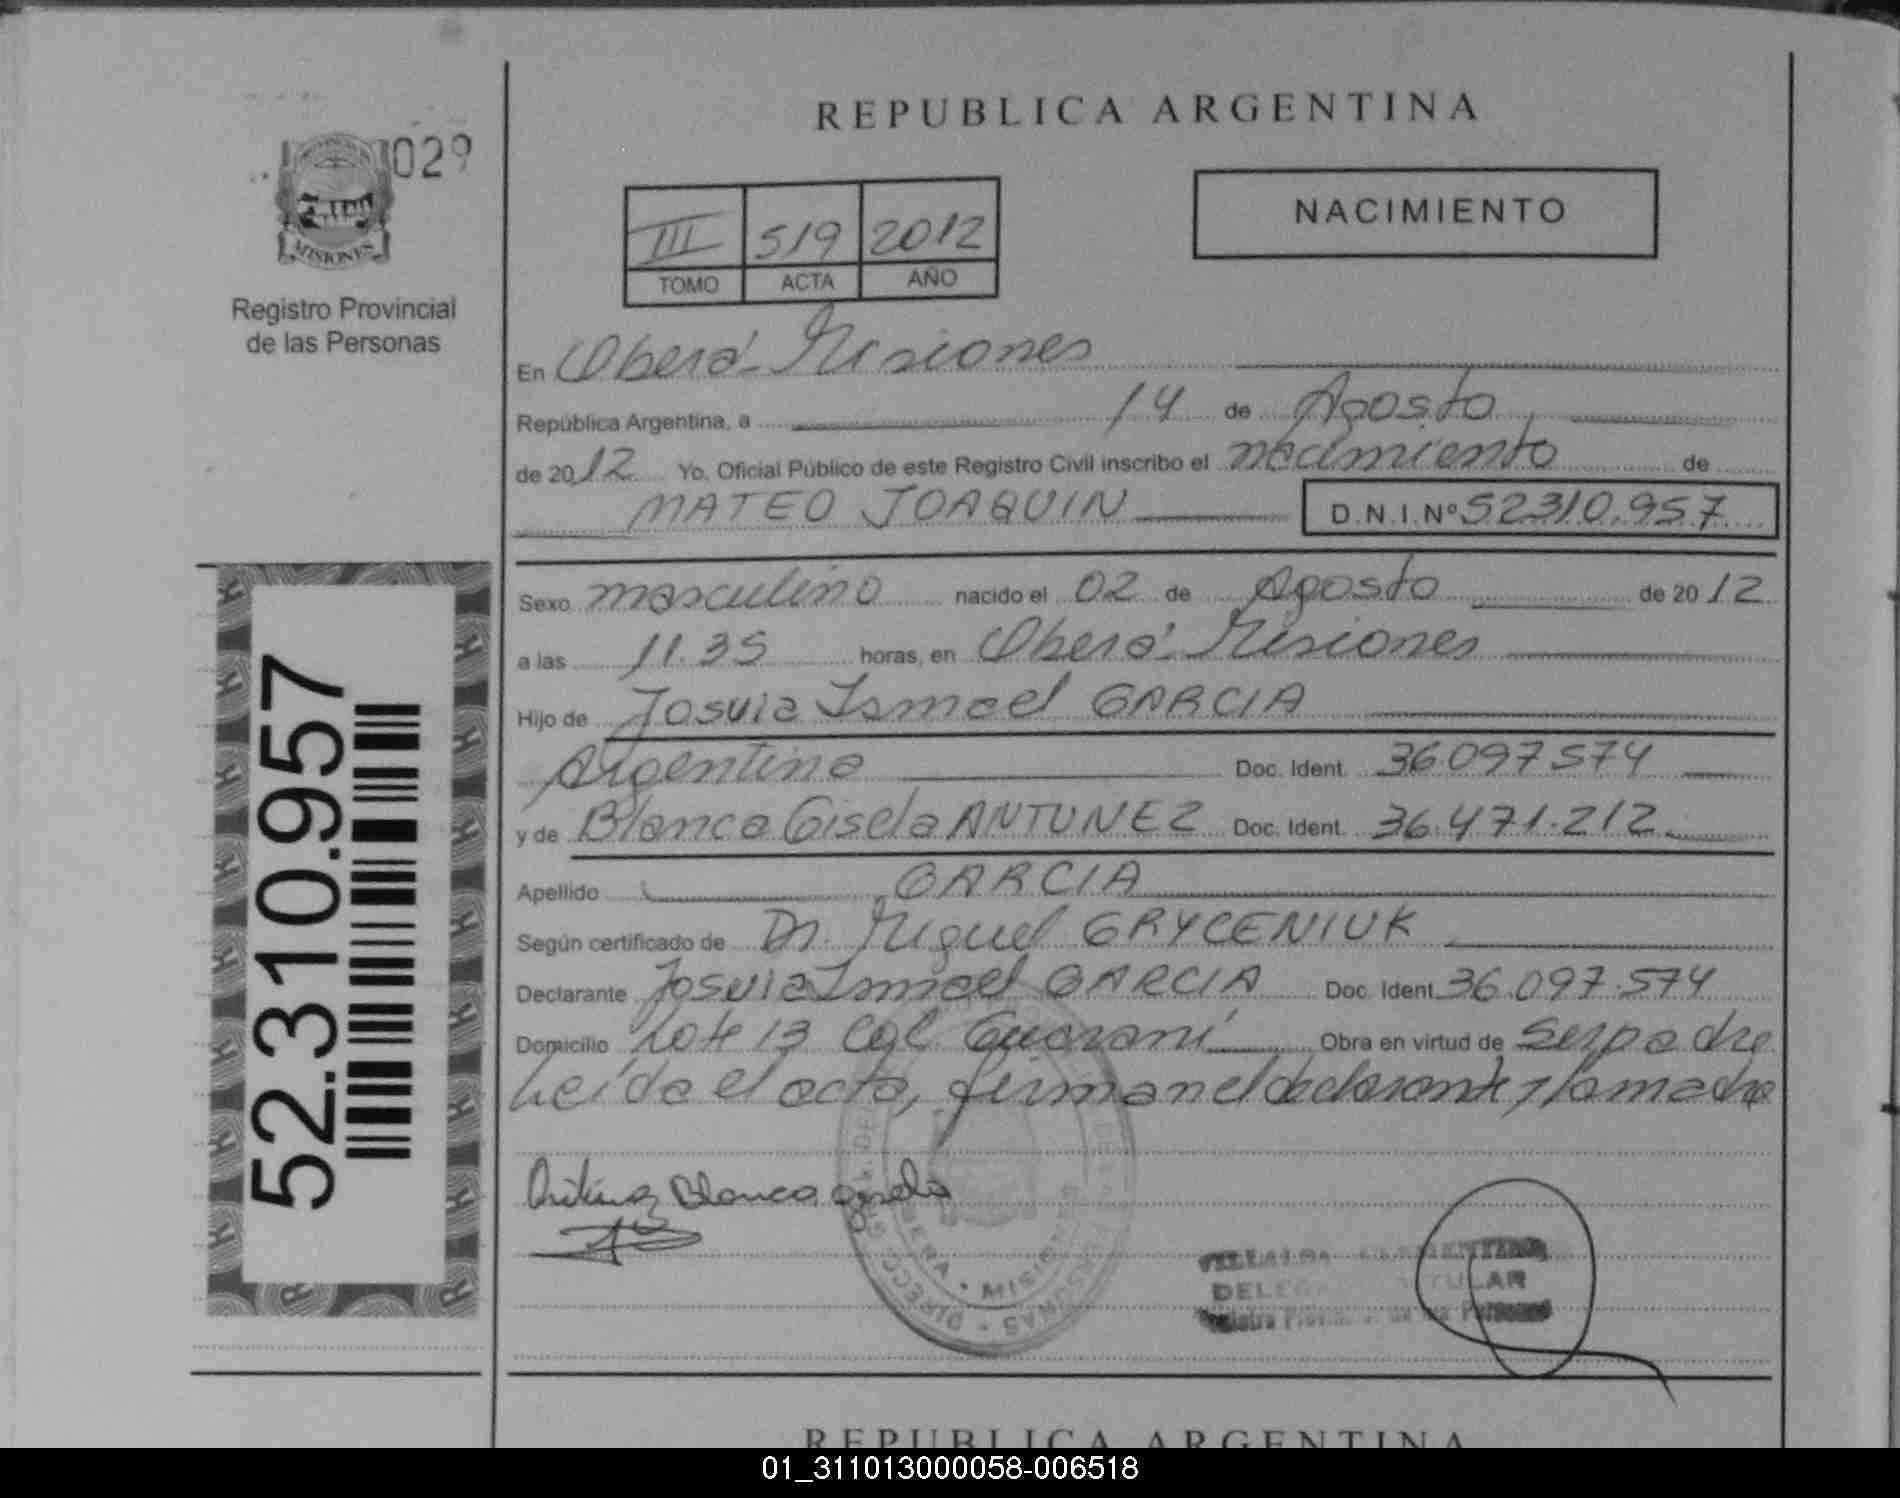 REPUBLICA ARGENTINA
029
MISIONES
Registro Provincial
de las Personas
NACIMIENTO
III 519 2012
TOMO ACTA AÑO
En Oberá - Misiones
República Argentina, a 14 de Agosto
de 2012 Yo, Oficial Público de este Registro Civil inscribo el nacimiento de
MATEO JOAQUIN D.N.I. Nº 52310.957
52.310.957
Sexo masculino nacido el 02 de Agosto de 2012
a las 11.35 horas, en Oberá - Misiones
Hijo de Josuia Ismael GARCIA
Argentino Doc. Ident. 36097574
y de Blanca Gisela ANTUNEZ Doc. Ident. 36.471.212
Apellido GARCIA
Según certificado de Dr. Miguel GRYCENIUK
Declarante Josuia Ismael GARCIA Doc. Ident. 36.097.574
Domicilio Lote 13 Cgl. Guaraní Obra en virtud de ser padre
Leída el acta, firman el declarante y la madre
Blanca
MISIONES
TITULAR
REPUBLICA ARGENTINA
01_311013000058-006518